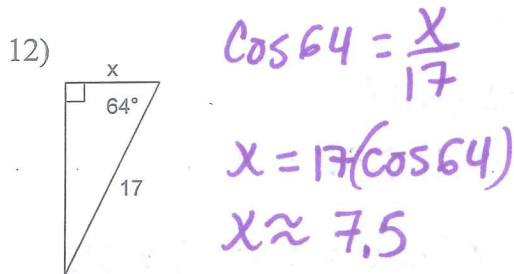 12)
x
64°
17
Cos 64 = x/17
x = 17(cos 64)
x ≈ 7.5